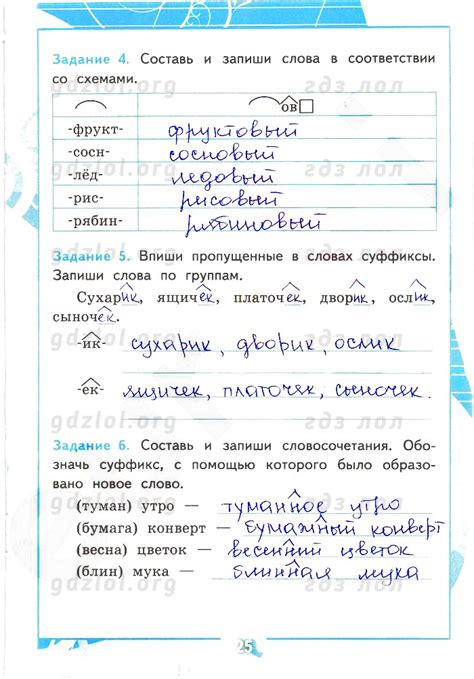 Задание 4. Составь и запиши слова в соответствии
со схемами.
gdzlol.org гдз лол
ов
-фрукт- фруктовый
-сосн- сосновый
gdzlol.org гдз лол
-лёд- ледовый
-рис- рисовый
-рябин- рябиновый
gdzlol.org гдз лол
Задание 5. Впиши пропущенные в словах суффиксы.
Запиши слова по группам.
Сухарик, ящичек, платочек, дворик, ослик,
сыночек.
gdzlol.org гдз лол
-ик- сухарик, дворик, ослик
-ек- ящичек, платочек, сыночек.
gdzlol.org гдз лол
Задание 6. Составь и запиши словосочетания. Обо-
значь суффикс, с помощью которого было образо-
вано новое слово.
gdzlol.org гдз лол
(туман) утро — туманное утро
(бумага) конверт — бумажный конверт
(весна) цветок — весенний цветок
(блин) мука — блинная мука
gdzlol.org гдз лол
25